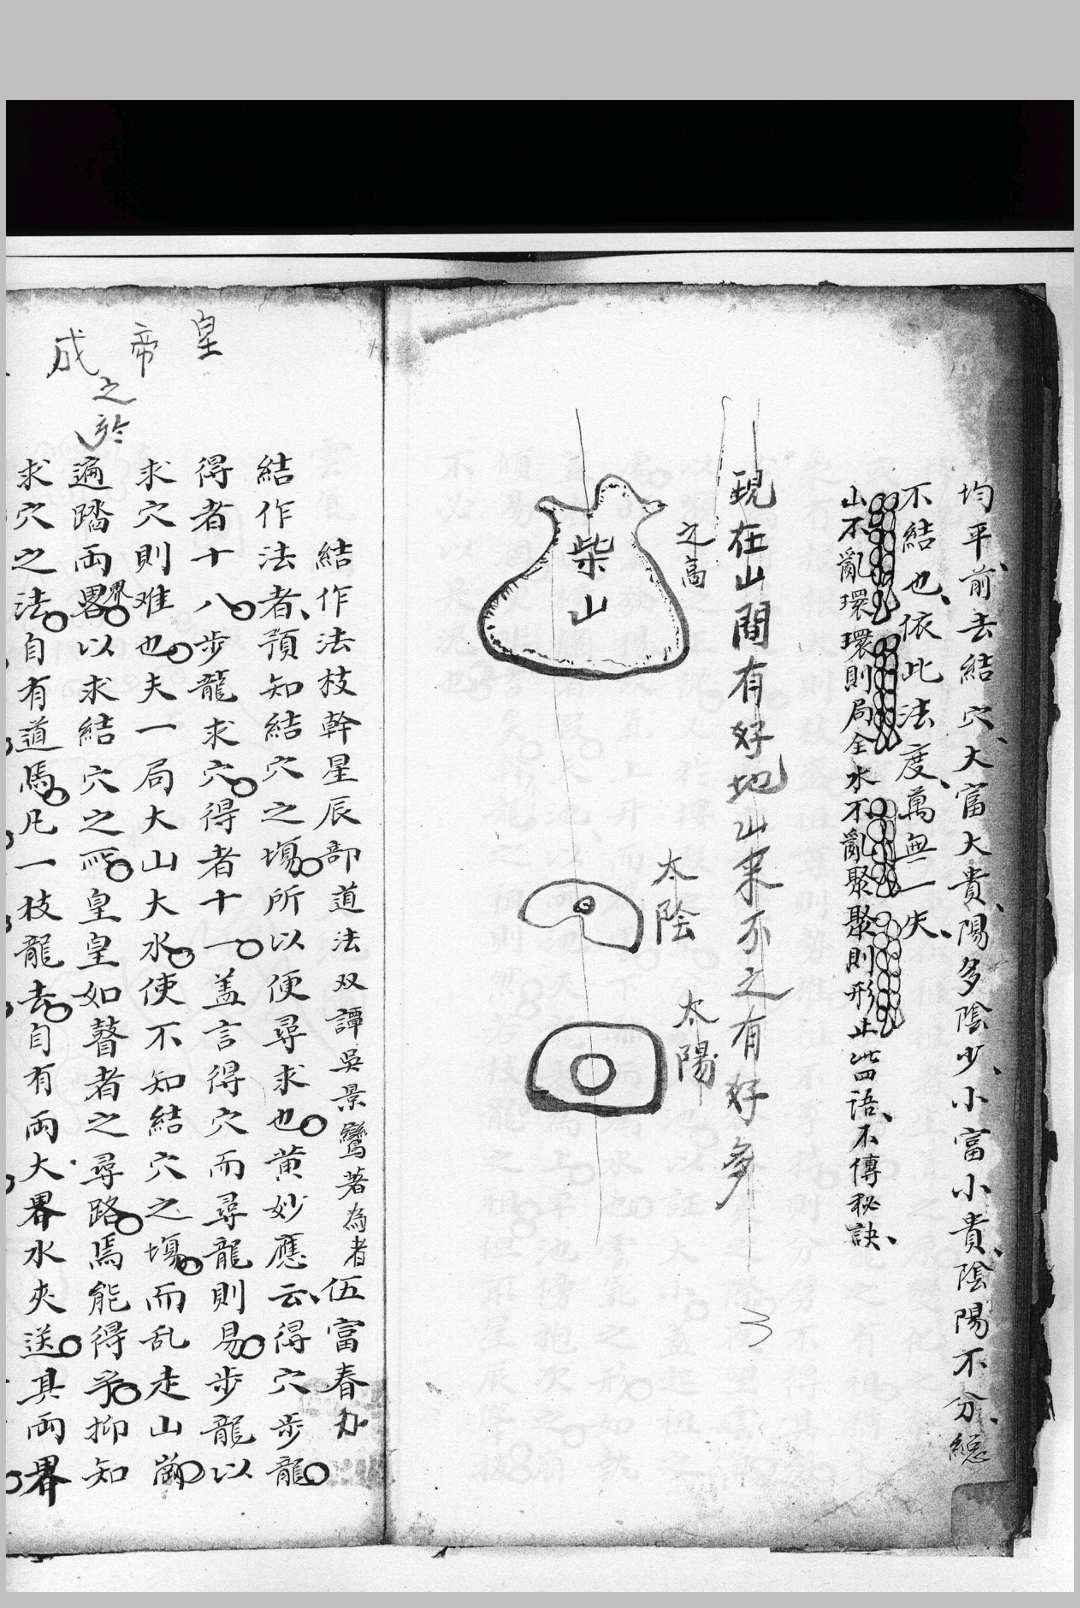 均平前去結穴大富大貴陽多陰少小富小貴陰陽不分總
不結也依此法度萬無一失
山不亂環環則局全水不亂聚聚則形止此四語不傳秘訣
現在山間有好地山来不之有好多
之高
柴山
太陰
太陽
結作法枝幹星辰部道法双譚吳景鸞著為者伍富春办
結作法者預知結穴之塲所以便尋求也黄妙應云得穴步龍
得者十八步龍求穴得者十一盖言得穴而尋龍則易步龍以
求穴則难也夫一局大山大水使不知結穴之塲而乱走山崗
遍踏両界以求結穴之所皇皇如瞽者之尋路焉能得乎抑知
求穴之法自有道焉凡一枝龍去自有両大界水夾送其両界
皇帝成
之於